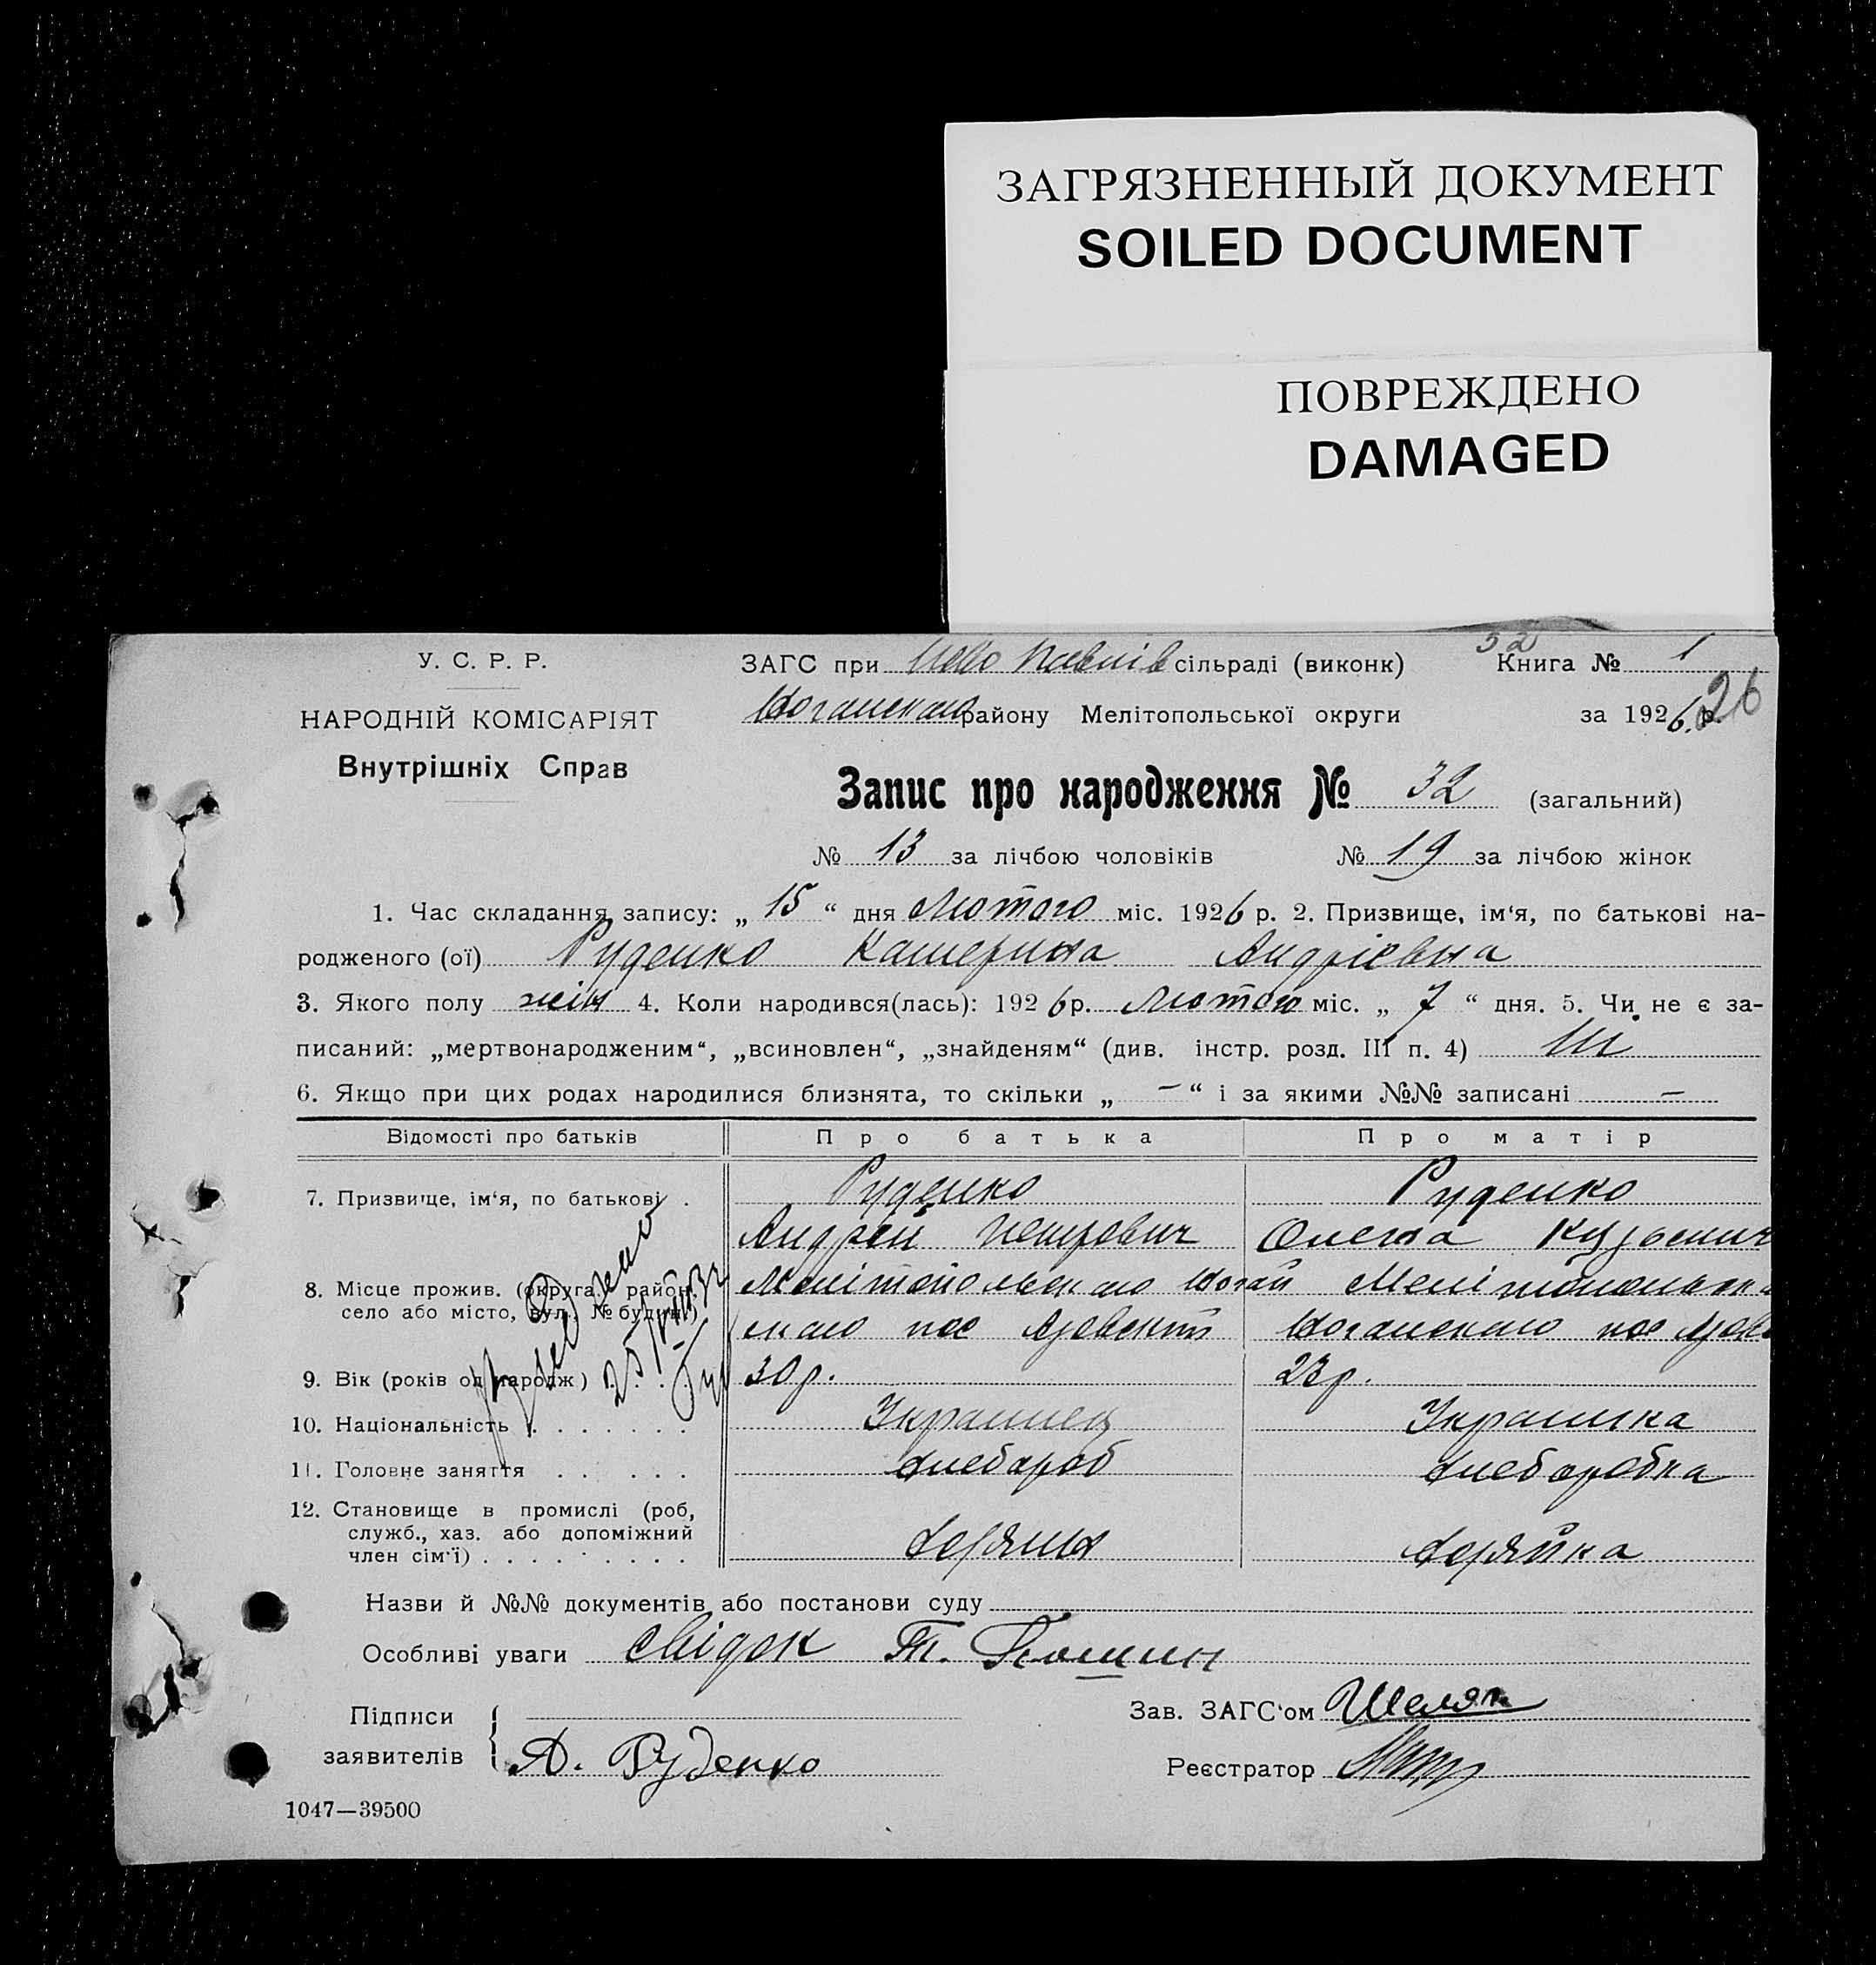 ЗАГРЯЗНЕННЫЙ ДОКУМЕНТ
SOILED DOCUMENT
ПОВРЕЖДЕНО
DAMAGED
У. С. Р. Р.
НАРОДНІЙ КОМІСАРІЯТ
Внутрішніх Справ
52
ЗАГС при Ново Павлів сільраді (виконк) Книга № 1
Ногайського району Мелітопольської округи за 1926 р. 26
Запис про народження № 32 (загальний)
№ 13 за лічбою чоловіків № 19 за лічбою жінок
1. Час складання запису: „ 15 “ дня Лютого міс. 1926 р. 2. Призвище, ім‘я, по батькові на-
родженого (ої) Руденко Катерина Андріевна
3. Якого полу жін 4. Коли народився(лась): 1926 р. Лютого міс. „ 7 “ дня. 5. Чи не є за-
писаний: „мертвонародженим“, „всиновлен“, „знайденям“ (див. інстр. розд. III п. 4) Ні
6. Якщо при цих родах народилися близнята, то скільки „ — “ і за якими №№ записані —
Відомості про батьків Про батька Про матір
7. Призвище, ім‘я, по батькові . Руденко Руденко
Андрей Петрович Олена
8. Місце прожив. (округа, район,
село або місто, вул., № будин.)
9. Вік (років од народж) . . . . 30 р. 23 р.
10. Національність . . . . . . . Украинец Украинка
11. Головне заняття . . . . . . хлебороб хлеборобка
12. Становище в промислі (роб,
служб., хаз. або допоміжний
член сім‘ї) . . . . . . . . . .
Назви й №№ документів або постанови суду
Особливі уваги свідок
Підписи
заявителів А. Руденко
Зав. ЗАГС‘ом
Реєстратор
1047—39500